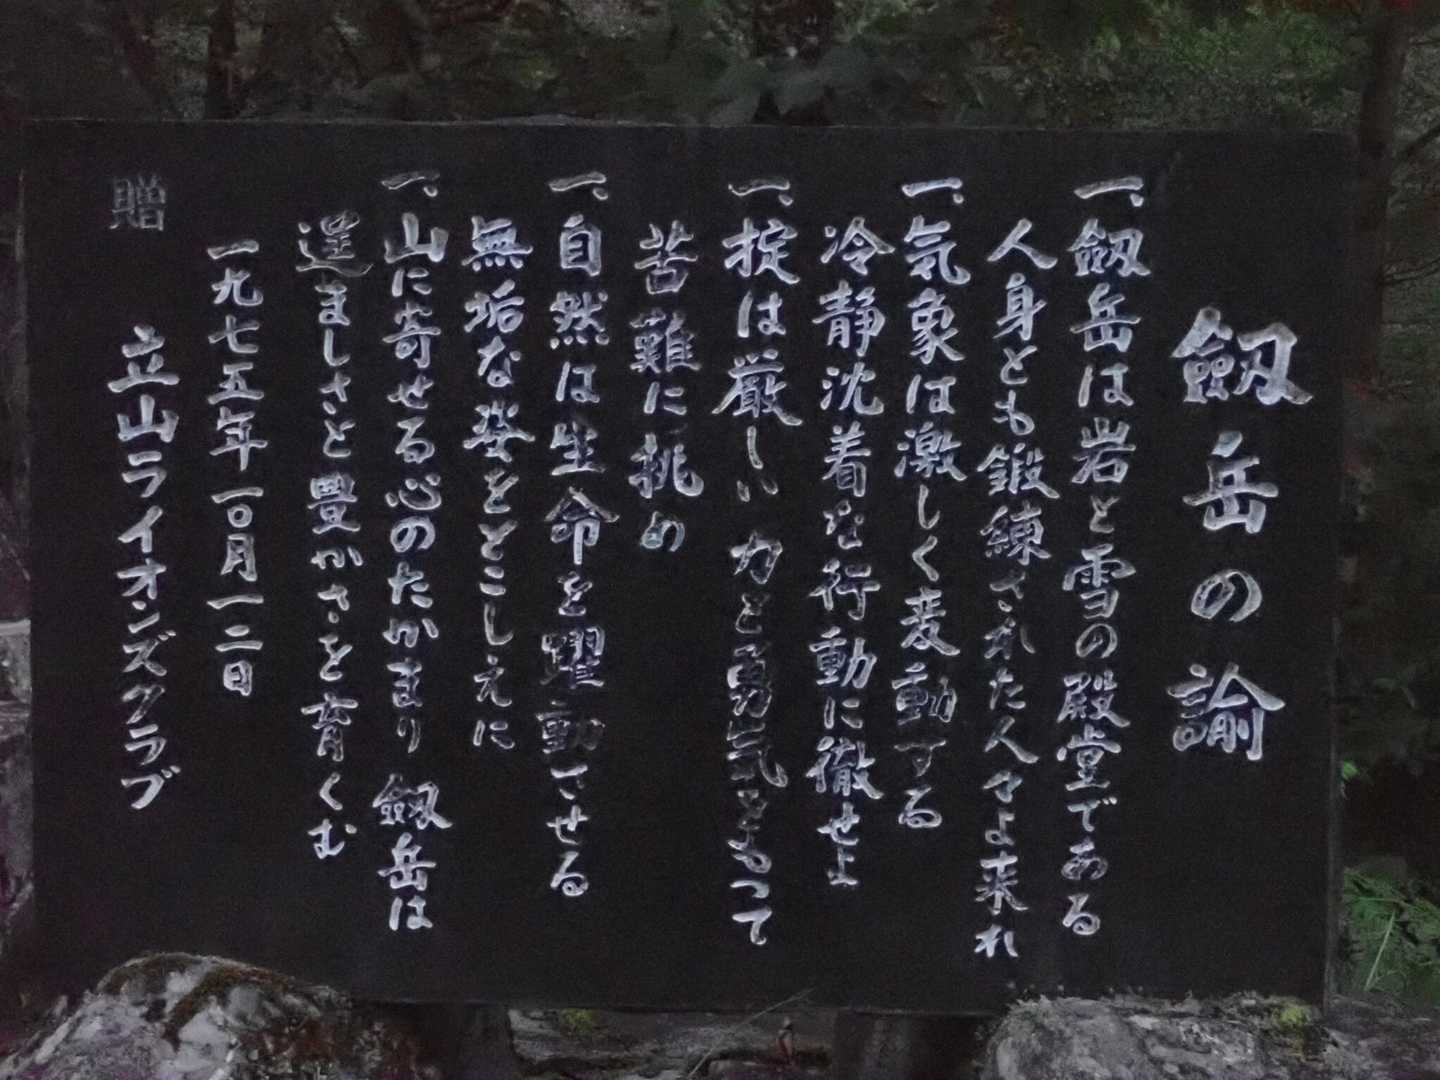 劔岳の諭
一、劔岳は岩と雪の殿堂である
人身とも鍛練された人々よ来れ
一、気象は激しく変動する
冷静沈着な行動に徹せよ
一、掟は厳しい 力と勇気をもって
苦難に挑め
一、自然は生命を躍動させる
無垢な姿をとこしえに
一、山に寄せる心のたかまり 劔岳は
逞ましさと豊かさを育くむ
一九七五年一〇月一二日
贈 立山ライオンズクラブ